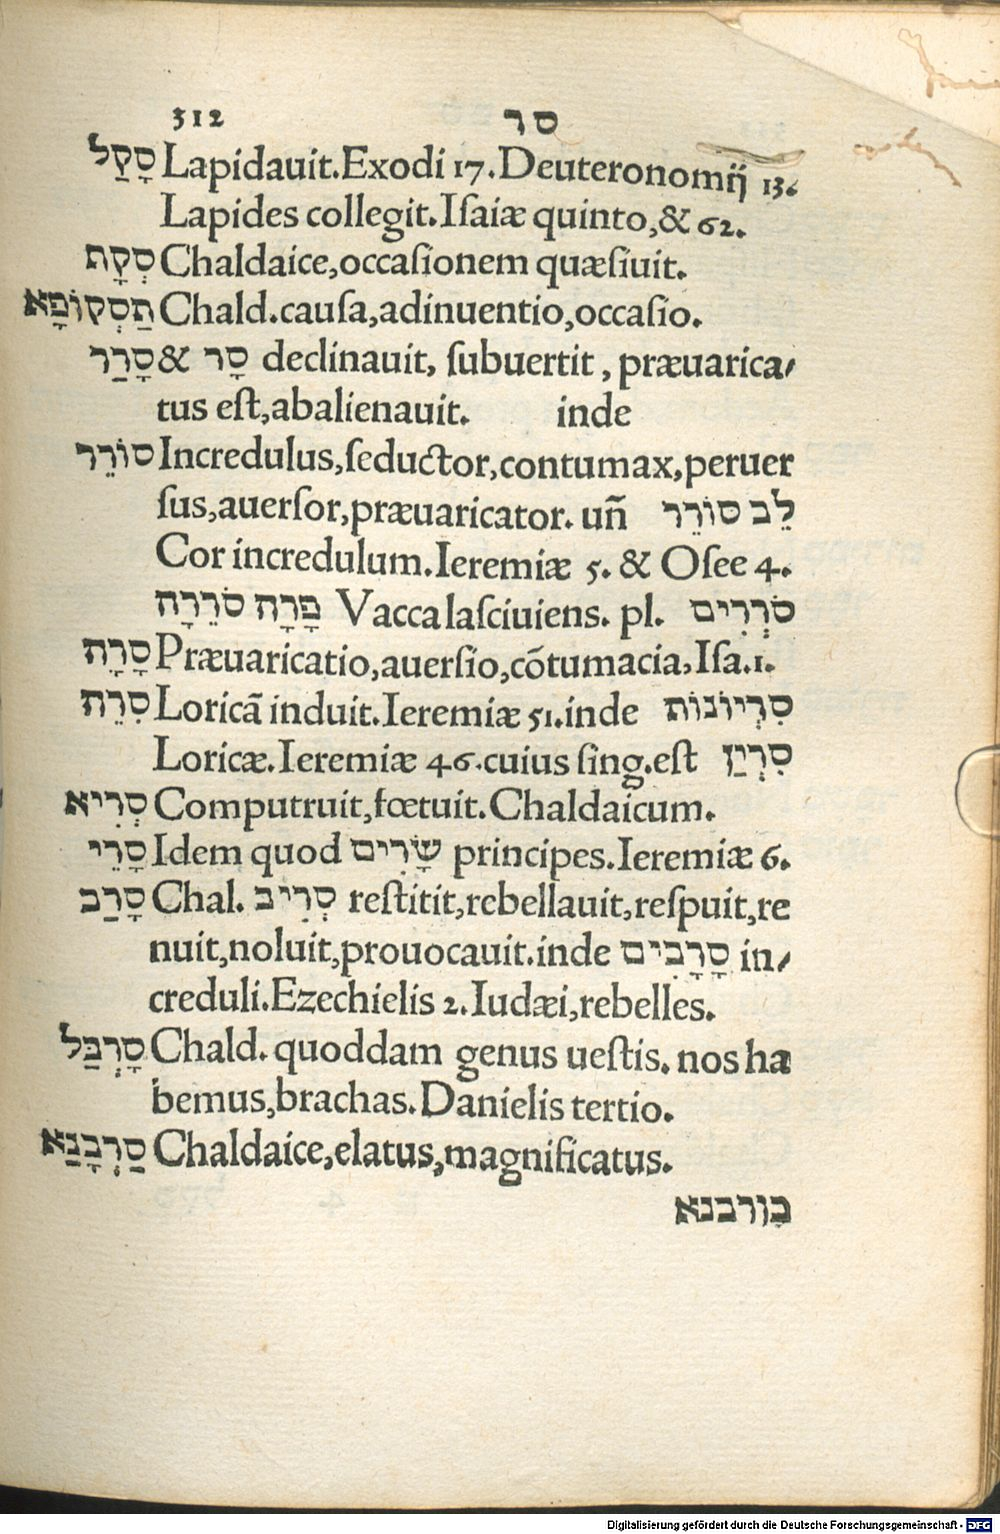 312 סר
סָקַל Lapidauit.Exodi 17.Deuteronomij 13.
Lapides collegit.Iſaiæ quinto,& 62.
סְקָת Chaldaice,occaſionem quæſiuit.
תַסְקוֹפָא Chald.cauſa,adinuentio,occaſio.
סָרַר & סָר declinauit, ſubuertit , præuarica/
tus eſt,abalienauit. inde
סוֹרֵר Incredulus,ſeductor,contumax,peruer
ſus,auerſor,præuaricator. un̄ לֵב סוֹרֵר
Cor incredulum.Ieremiæ 5. & Oſee 4.
פָרָה סֹרֵרָה Vacca laſciuiens. pl. סֹרְרִים
סָרָה Præuaricatio,auerſio,cōtumacia,Iſa.1.
סִרֵה Loricā induit.Ieremiæ 51.inde סִרְיוֹנוֹת
Loricæ.Ieremiæ 46.cuius ſing.eſt סִרְיַן
סְרִיא Computruit,fœtuit.Chaldaicum.
סָרֵי Idem quod שָׂרִים principes.Ieremiæ 6.
סָרַב Chal. סְרִיב reſtitit,rebellauit,reſpuit,re
nuit,noluit,prouocauit.inde סָרָבִים in/
creduli.Ezechielis 2.Iudæi,rebelles.
סָרְבַּל Chald. quoddam genus ueſtis. nos ha
bemus,brachas.Danielis tertio.
סַרְבָנַא Chaldaice,elatus,magnificatus.
Digitalisierung gefördert durch die Deutsche Forschungsgemeinschaft - DFG